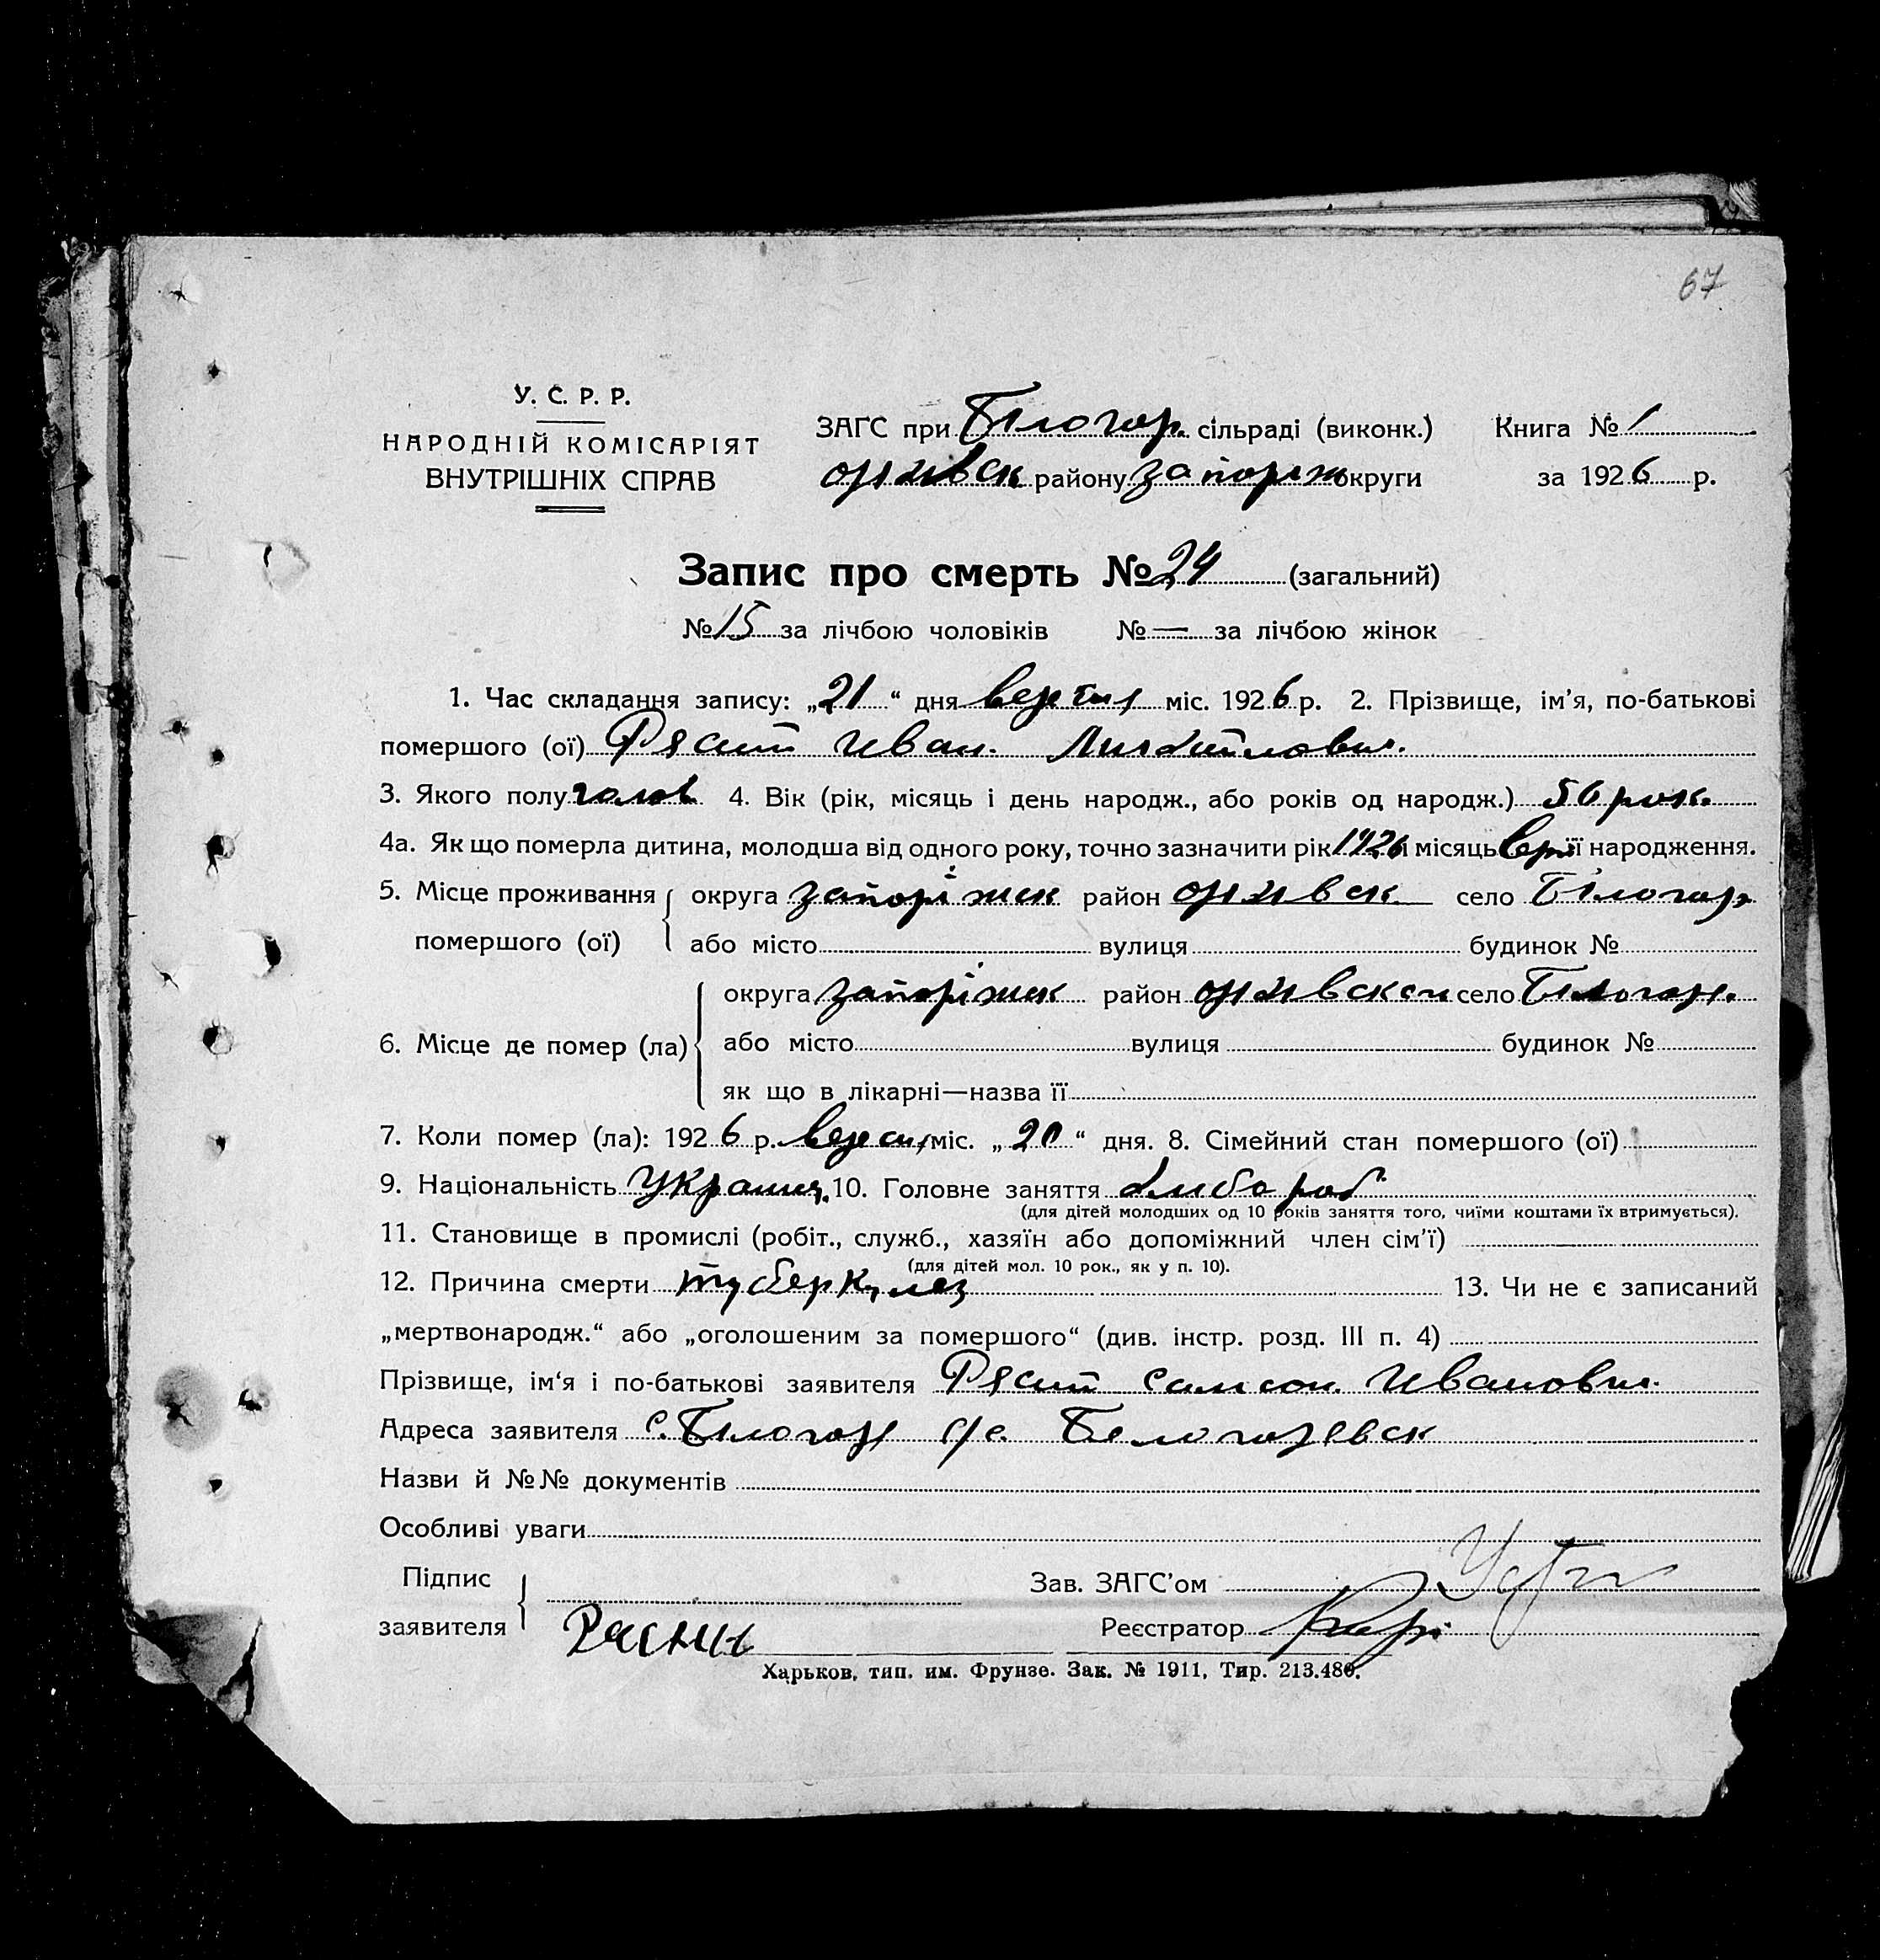 67
У. С. Р. Р.
НАРОДНІЙ КОМІСАРІЯТ
ВНУТРІШНІХ СПРАВ
ЗАГС при Білогор. сільраді (виконк.) Книга № 1
району запоріж округи за 1926 р.
Запис про смерть № 24 (загальний)
№ 15 за лічбою чоловіків № — за лічбою жінок
1. Час складання запису: „21“ дня міс. 1926 р. 2. Прізвище, ім'я, по-батькові
помершого (ої) Рясний Иван. Михайлович.
3. Якого полу чолов 4. Вік (рік, місяць і день народж., або років од народж.) 56 рок.
4а. Як що померла дитина, молодша від одного року, точно зазначити рік 1926 і місяць її народження.
5. Місце проживання округа запоріжск район село Білогор
помершого (ої) або місто вулиця будинок №
округа запоріжск район село Білогор.
6. Місце де помер (ла) або місто вулиця будинок №
як що в лікарні—назва її
7. Коли помер (ла): 1926 р. вересн міс. „20“ дня. 8. Сімейний стан помершого (ої)
9. Національність 10. Головне заняття хлибороб
(для дітей молодших од 10 років заняття того, чиїми коштами їх втримується).
11. Становище в промислі (робіт., служб., хазяїн або допоміжний член сім'ї)
(для дітей мол. 10 рок., як у п. 10).
12. Причина смерти туберкулез 13. Чи не є записаний
„мертвонародж.“ або „оголошеним за помершого“ (див. інстр. розд. III п. 4)
Прізвище, ім'я і по-батькові заявителя Рясний Самсон. Иванович.
Адреса заявителя с. Білогор с/с. Белогоревск
Назви й №№ документів
Особливі уваги
Підпис Зав. ЗАГС'ом
заявителя Реєстратор
Харьков, тип. им. Фрунзе. Зак. № 1911, Тир. 213.480.